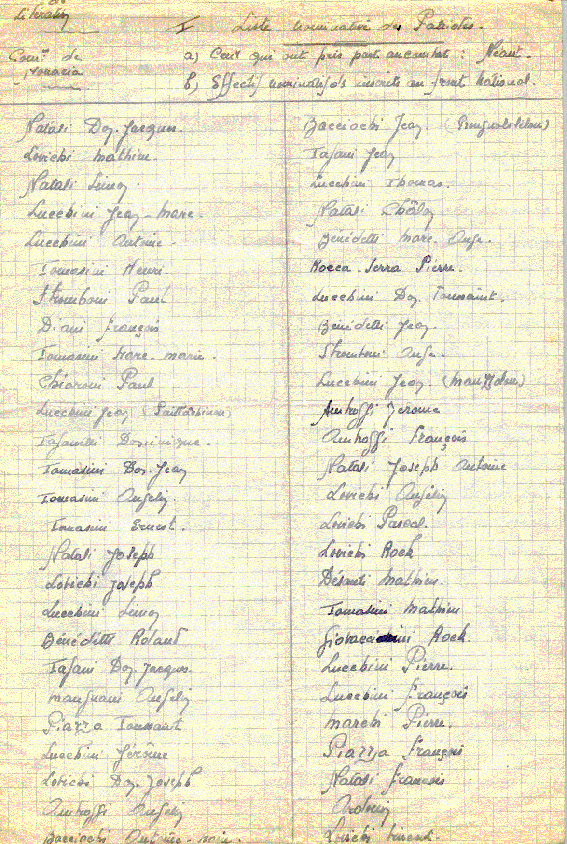 de
Libération
I Liste nominative des Patriotes.
Comne de
Monacia
a) Ceux qui ont pris part au combat : Néant.
b) Effectif nominatif des inscrits au front National.
Natali Don Jacques
Lovichi Mathieu.
Natali Simon.
Lucchini Jean-Marc.
Lucchini Antoine.
Tomasini Henri.
Stromboni Paul
Diani François
Tomasini Marc-Marie.
Chiaroni Paul
Lucchini Jean
Tafanelli Dominique.
Tomasini Don-Jean
Tomasini Angelin.
Tomasini Ernest.
Natali Joseph
Lovichi Joseph
Lucchini Simon
Bénédetti Roland
Tafani Don Jacques.
Mangnani Angelin
Piazza Toussaint
Lucchini Jérôme
Lovichi Don Joseph
Ambroggi Angelin
Bacciochi Antoine-
Bacciochi Jean
Tafani Jean
Lucchini Thomas.
Natali
Bénédetti Marc Ange.
Rocca Serra Pierre.
Lucchini Don Toussaint.
Bénédetti Jean.
Stromboni Ange.
Lucchini Jean
Ambroggi Jérome
Ambroggi François
Natali Joseph Antoine
Lovichi Angélin
Lovichi Pascal.
Lovichi Rock
Désanti Mathieu.
Tomasini Mathieu
Rock.
Lucchini Pierre.
Lucchini François
Marchi Pierre.
Piazza François
Natali François
Ardouin
Lovichi Vincent.